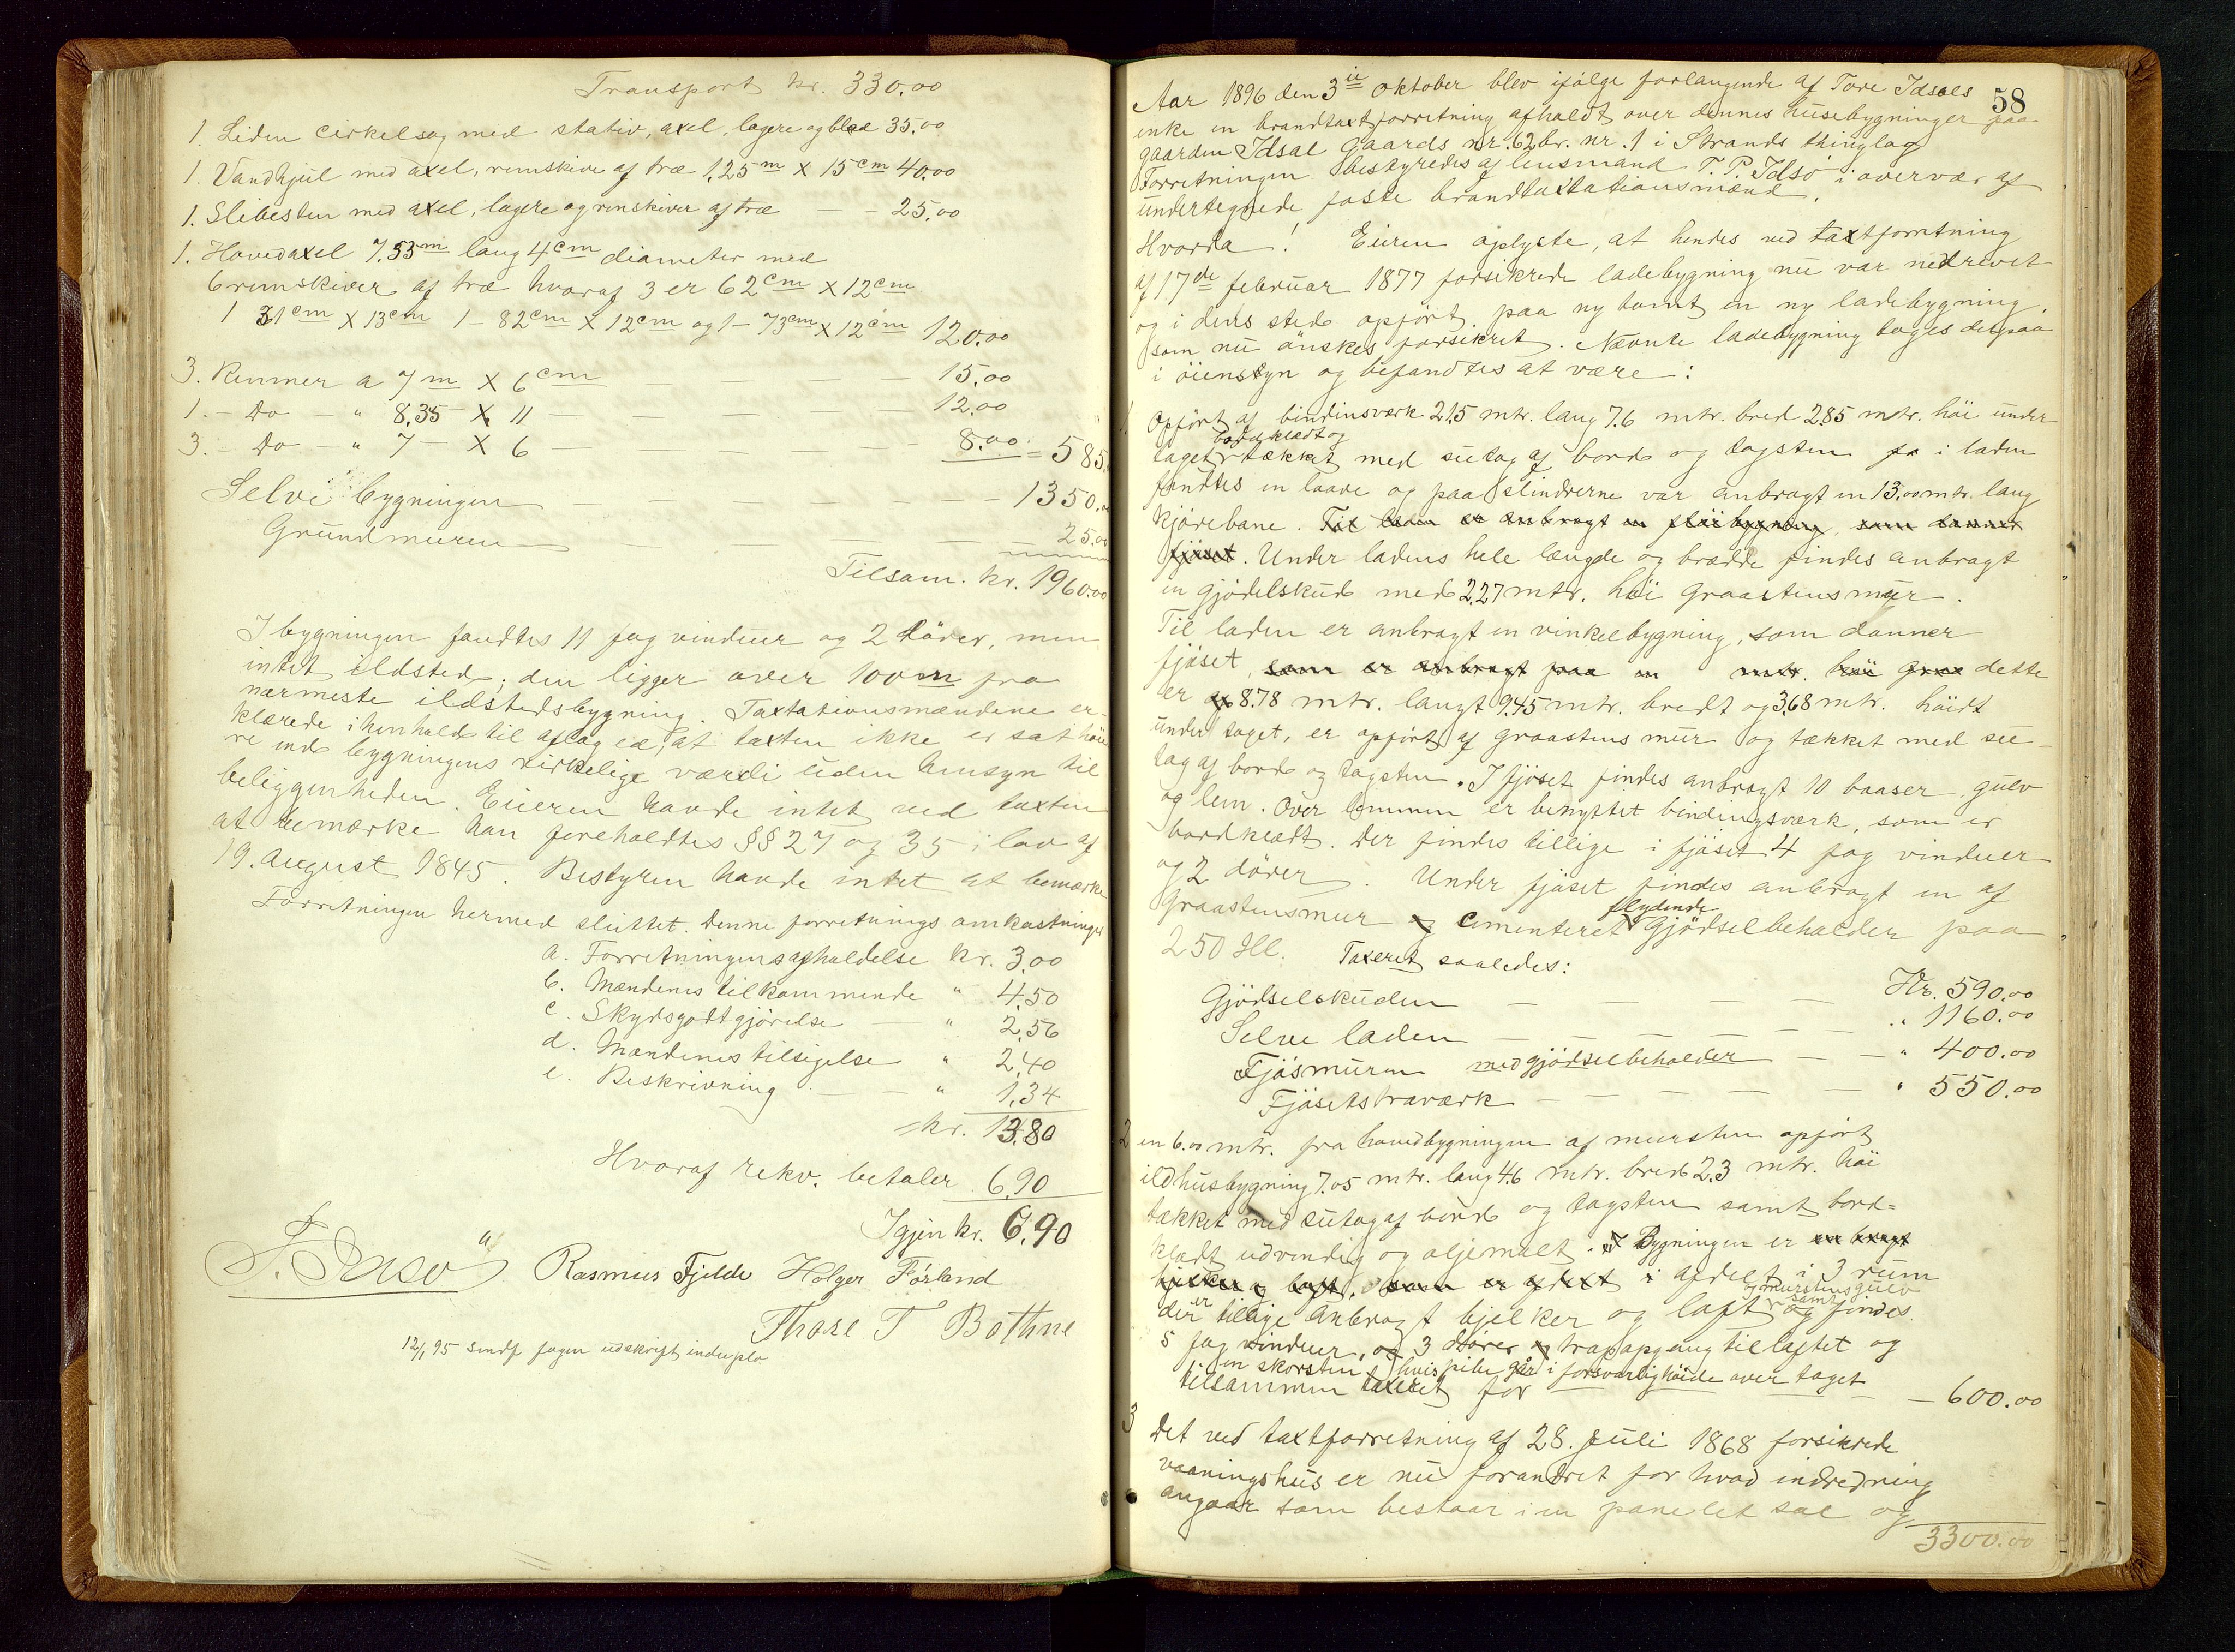 Transport kr. 330.00
1. Liden cirkelsag med stativ, axel, lagere og blad 35.00
1. Vandhjul med axel, remskive af træ 1,25 m x 15 cm 40.00
1. Slibesten med axel, lagere og remskiver af træ — - 25.00
1. Hovedaxel 7.53 m lang 4 cm diameter med
6 remskiver af træ hvoraf 3 er 62 cm x 12 cm
1 31 cm x 13 cm 1 - 82 cm x 12 cm og 1 - 73 cm x 12 cm 120.00
3. Remmer a 7 m x 6 cm — — — — 15.00
1. - Do - " 8,35 x 11 — — — — 12.00
3. - Do - " 7 - x 6 — — — — 8.00 = 585.
Selve bygningen — — — — 1350.00
Grundmuren — — — 25.00
Tilsam. kr. 1960.00
I bygningen fandtes 11 fag vinduer og 2 dører, men
intet ildsted; den ligger over 100 m fra
nærmeste ildstedsbygning. Taxtationsmændene er-
klærede i henhold til aflag ed, at taxten ikke er sat høie
re end bygningens virkelige værdi uden hensyn til
beliggenheden. Eieren havde intet ved taxten
at bemærke han foreholdtes §§ 27 og 35 i lov af
19. August 1845. Bestyren havde intet at bemærke
Forretningen hermed sluttet. Denne forretnings omkostninger
a. Forretningens afholdelse kr. 3,00
b. Mændenes tilkommende " 4,50
c. Skydsgodtgjørelse — " 2,56
d. Mændenes tilsigelse " 2,40
e. Beskrivning — — " 1,34
kr. 13.80
Hvoraf rekv. betaler 6,90
Igjen kr. 6,90
T. Idsø Rasmus Fjelde Holger Førland
Thore T Bothne
12/1 95 sendt fogen udskrift in duplo
58
Aar 1896 den 3die oktober blev ifølge forlangende af Tore Idsals
enke en brandtaxtforretning afholdt over dennes husebygninger paa
gaarden Idsal Gaards nr. 62 br. nr. 1 i Strands thinglag
Forretningen bestyredes af lensmand T. P. Idsø i overvær af
undertegnede faste brandtaxtationsmænd.
Hvorda! Eieren oplyste, at hendes ved taxtforretning
af 17de februar 1877 forsikrede ladebygning nu var nedrevet
og i dens sted opført paa ny tomt en ny ladebygning,
som nu ønskes forsikret. Nævnte ladebygning toges derpaa
i øiensyn og befandtes at være:
1. Opført af bindinsværk 21,5 mtr. lang 7.6 mtr. bred 2,85 mtr. høi under
bordklædt og
taget tækket med sutag af bord og tagsten i laden
fandtes en laave og paa slindrerne var anbragt en 13.00 mtr. lang
kjørebane. Til laden er anbragt en fløibygning, som danner
fjøset. Under ladens hele længde og brædde findes anbragt
en gjødelskud med 2,27 mtr. høi Graastensmur.
Til laden er anbragt en vinkelbygning, som danner
fjøset, som er anbragt paa en mtr. høi graa dette
er 8.78 mtr. langt 9,45 mtr. bredt og 3,68 mtr. høidt
under taget, er opført af graastens mur og tækket med su-
tag af bord og tagsten. I fjøset findes anbragt 10 baaser, gulv
og lem. Over lemmen er benyttet bindingsværk, som er
bordklædt. Der findes tillige i fjøset 4 fag vinduer
og 2 dører. Under fjøset findes anbragt en af
flydende
Graastensmur og cementeret Gjødselbeholder paa
250 Hl. Taxeret saaledes:
Gjødselskuden — — — Kr. 590.00
Selve laden — — — " 1160.00
Fjøsmuren med gjødselbeholder — — " 400.00
Fjøsets træværk — — — — " 550.00
2 en 6.00 mtr. fra hovedbygningen af mursten opført
ildhusbygning 7.05 mtr. lang 4.6 mtr. bred 2.3 mtr. høi
tækket med sutag af bord og tagsten samt bord=
klædt udvendig og oljemalt. Bygningen er anbragt
bjelker og loft, som er afdelt i afdelt i 3 rum
og murstensgulv
er samt
der tillige anbragt bjelker og loft og findes
5 fag vinduer, og 3 dører og trapopgang til loftet og
en skorsten, hvis pibe går i forsvarlig høide over taget
tilsammen taxeret for — 600.00
3 Det ved taxtforretning af 28. Juli 1868 forsikrede
vaaningshus er nu forandret for hvad indredning
angaar som bestaar i en panelet sal og
3300.00